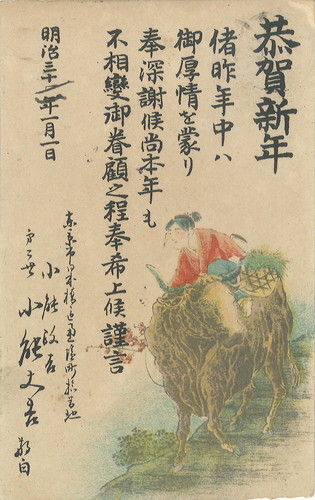 恭賀新年
偖昨年中ハ
御厚情を蒙り
奉深謝候尚本年も
不相變御眷顧之程奉希上候謹言
明治三十年一月一日
東京市日本橋區通塩町拾番地
小能政吉
小能文吉
敬白